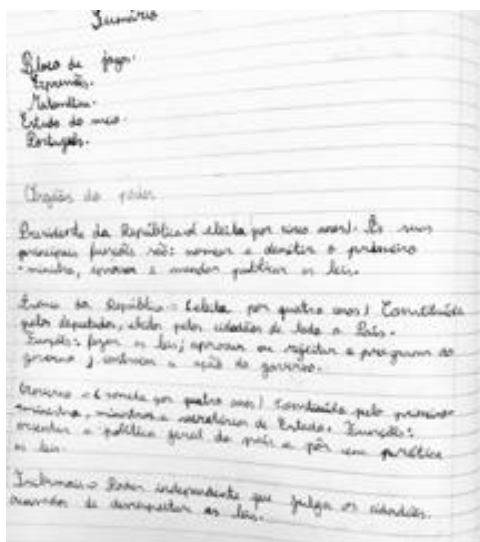 Sumário
Bloco de jogos.
Expressões.
Matemática.
Estudo do meio.
Português.
Órgãos do poder
Presidente da República (eleito por cinco anos). As suas
principais funções são: nomear e demitir o primeiro
-ministro, aprovar e mandar publicar as leis.
da República - (eleita por quatro anos) Constituída
pelos deputados, eleitos pelos cidadãos de todo o País.
Funções: fazer as leis; aprovar ou rejeitar o programa do
governo; a ação do governo.
Governo - ( por quatro anos) Constituído pelo primeiro-
ministro, ministros e secretários de Estado. Funções:
orientar a política geral do país e pôr em prática
as leis.
Tribunais - Poder independente que julga os cidadãos
acusados de desrespeitar as leis.